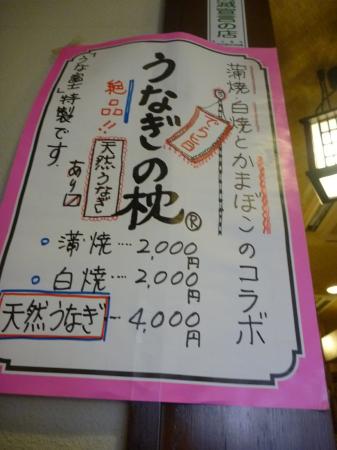 滅宣言の店
「蒲焼・白焼とかまぼこ」のコラボ
でら旨
うなぎの枕®
絶品!!
天然うなぎ
あり〼
「うな富士」特製です.
蒲焼····2,000円
白焼····2,000円
天然うなぎ····4,000円